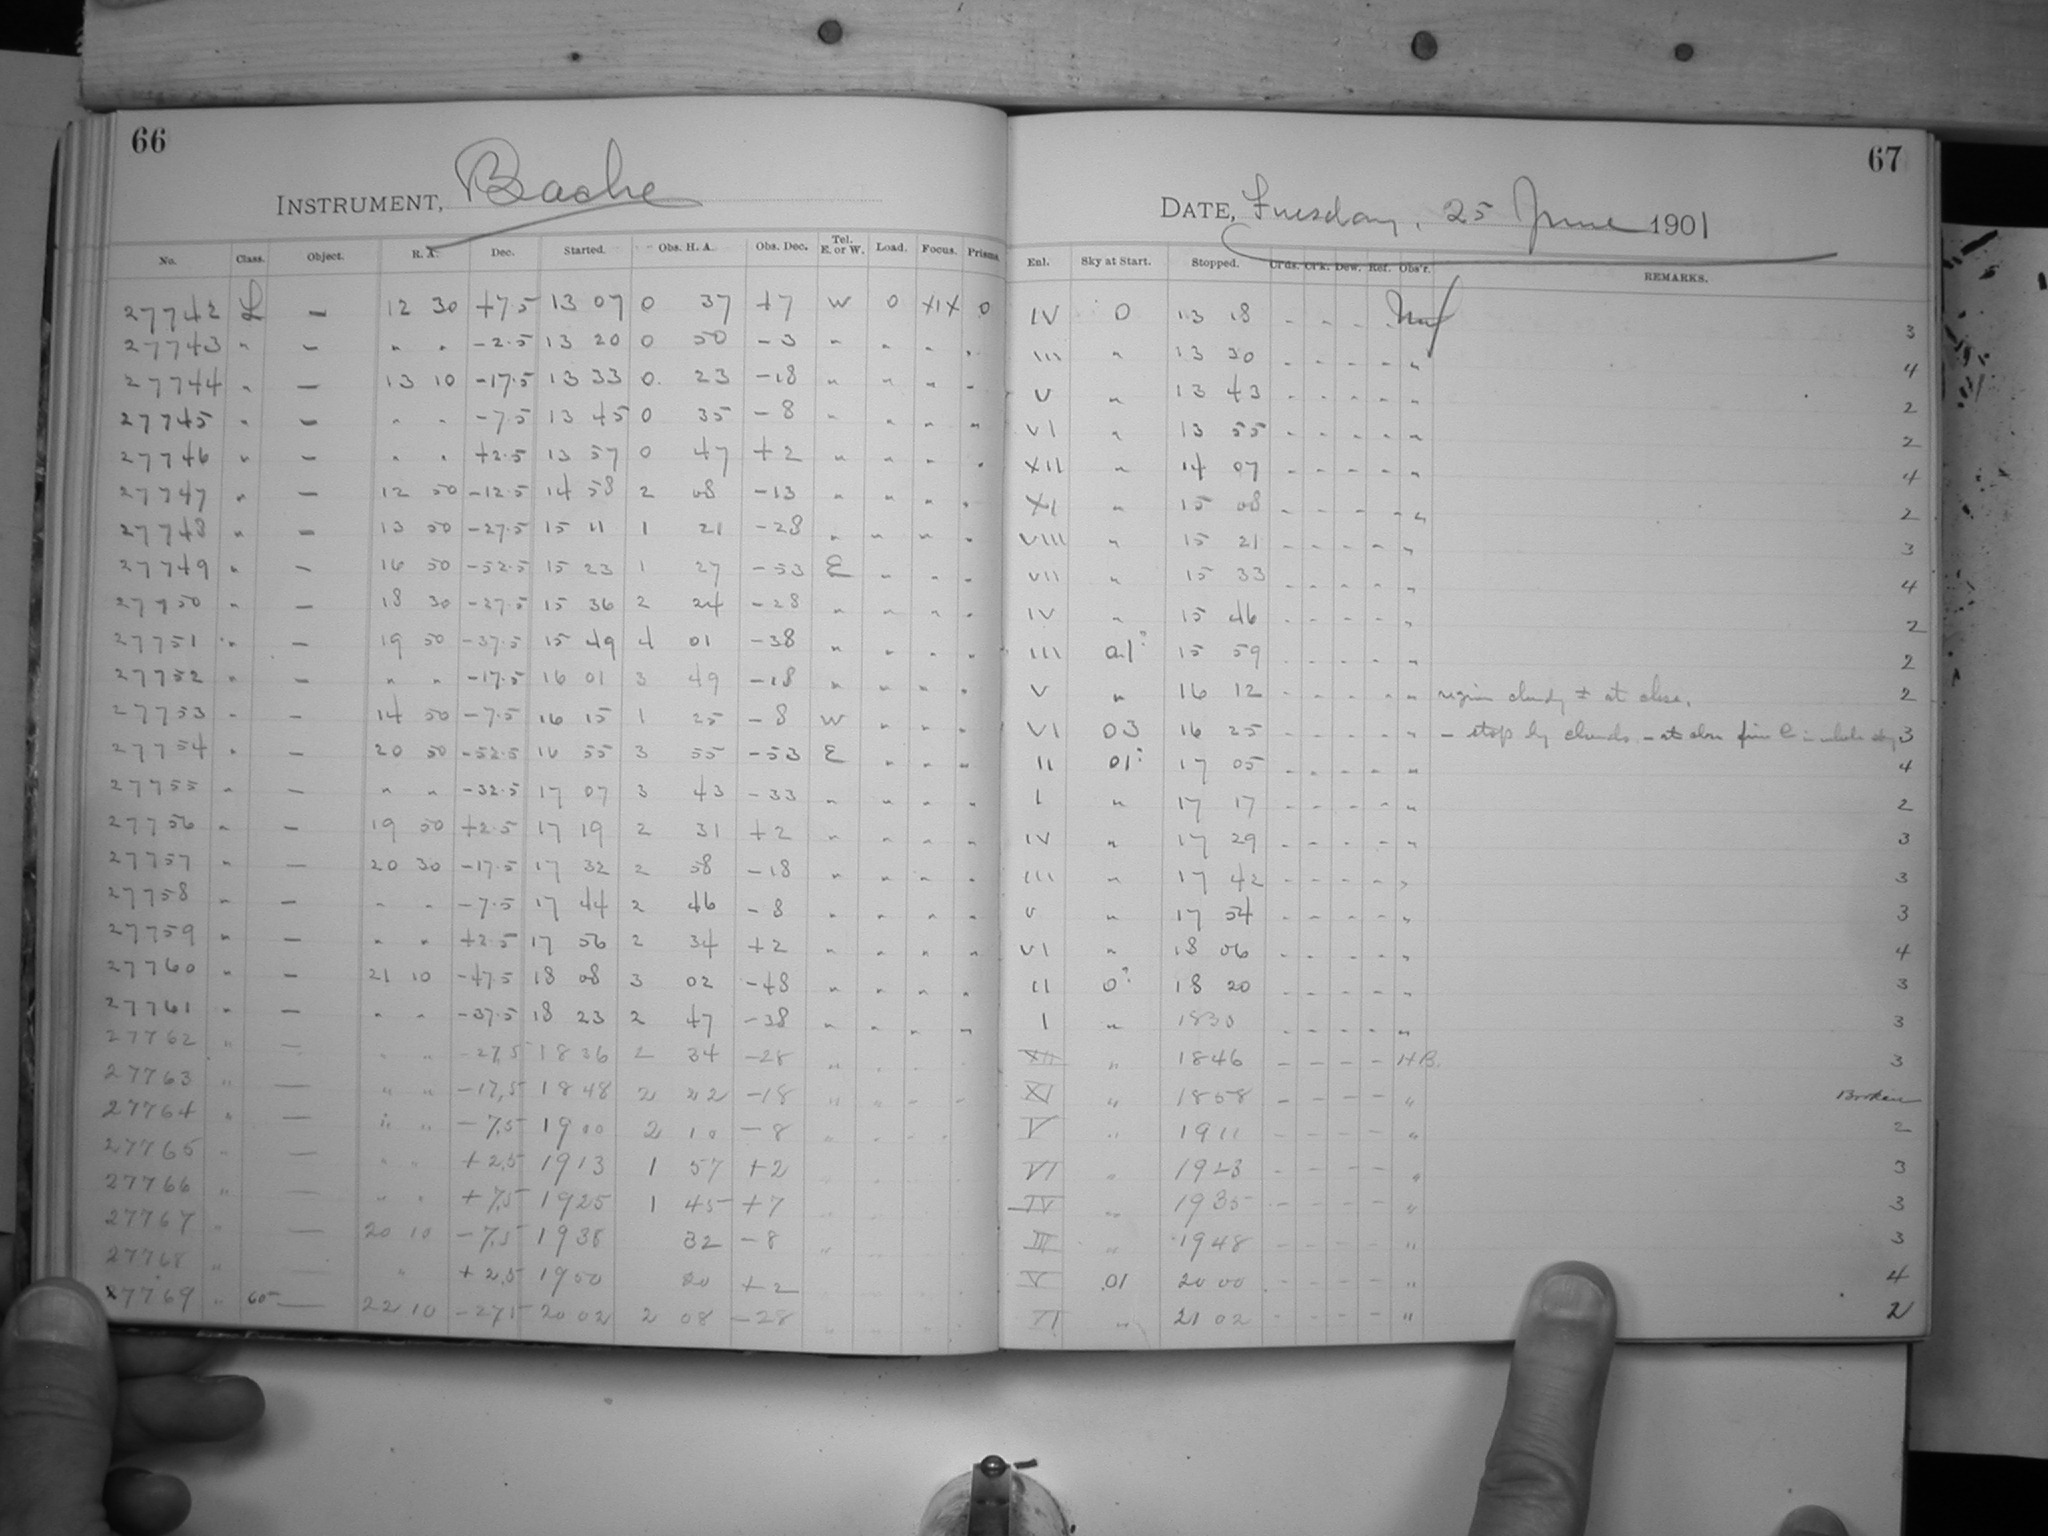 66
INSTRUMENT, Bache
No. Class. Object. R. A. Dec. Started. Obs. H. A. Obs. Dec. Tel. E. or W. Load. Focus. Prisms.
27742 L — 12 30 +7.5 13 07 0 37 +7 W 0 XIX 0
27743 " — " " -2.5 13 20 0 50 -3 " " " "
27744 " — 13 10 -17.5 13 33 0 23 -18 " " " "
27745 " — " " -7.5 13 45 0 35 -8 " " " "
27746 " — " " +2.5 13 57 0 47 +2 " " " "
27747 " — 12 50 -12.5 14 58 2 08 -13 " " " "
27748 " — 13 50 -27.5 15 11 1 21 -28 " " " "
27749 " — 16 50 -52.5 15 23 1 27 -53 E " " "
27750 " — 18 30 -27.5 15 36 2 24 -28 " " " "
27751 " — 19 50 -37.5 15 49 4 01 -38 " " " "
27752 " — " " -17.5 16 01 3 49 -18 " " " "
27753 " — 14 50 -7.5 16 15 1 25 -8 W " " "
27754 " — 20 50 -52.5 16 55 3 55 -53 E " " "
27755 " — " " -32.5 17 07 3 43 -33 " " " "
27756 " — 19 50 +2.5 17 19 2 31 +2 " " " "
27757 " — 20 30 -17.5 17 32 2 58 -18 " " " "
27758 " — " " -7.5 17 44 2 46 -8 " " " "
27759 " — " " +2.5 17 56 2 34 +2 " " " "
27760 " — 21 10 -47.5 18 08 3 02 -48 " " " "
27761 " — " " -37.5 18 23 2 47 -38 " " " "
27762 " — " " -27.5 18 36 2 34 -28 " " " "
27763 " — " " -17.5 18 48 2 22 -18 " " " "
27764 " — " " -7.5 19 00 2 10 -8 " " " "
27765 " — " " +2.5 19 13 1 57 +2
27766 " — " " +7.5 19 25 1 45 +7
27767 " — 20 10 -7.5 19 38 32 -8 "
27768 " — " +2.5 19 50 20 +2
27769 " 60m — 22 10 -27.5 20 02 2 08 -28 " " " "
67
DATE, Tuesday, 25 June 1901
Enl. Sky at Start. Stopped. Cr'ds. Cl'k. Dew. Ref. Obs'r. REMARKS.
IV 0 13 18 - - - - 3
III " 13 30 - - - - " 4
V " 13 43 - - - - " 2
VI " 13 55 - - - - " 2
XII " 14 07 - - - - " 4
XI " 15 08 - - - - " 2
VIII " 15 21 - - - - " 3
VII " 15 33 - - - - " 4
IV " 15 46 - - - - " 2
III 01? 15 59 - - - - " 2
V " 16 12 - - - - " region cloudy ± at close. 2
VI 03 16 25 - - - - " - stop by clouds - at close 3
II 01? 17 05 - - - - " 4
I " 17 17 - - - - " 2
IV " 17 29 - - - - " 3
III " 17 42 - - - - " 3
V " 17 54 - - - - " 3
VI " 18 06 - - - - " 4
II 0? 18 20 - - - - " 3
I " 18 30 - - - - " 3
XII " 18 46 - - - - HB. 3
XI " 18 58 - - - - " Broken
V " 19 11 - - - - " 2
VI " 19 23 - - - - " 3
IV " 19 35 - - - - " 3
III " 19 48 - - - - " 3
V 01 20 00 - - - - " 4
VI " 21 02 - - - - " 2